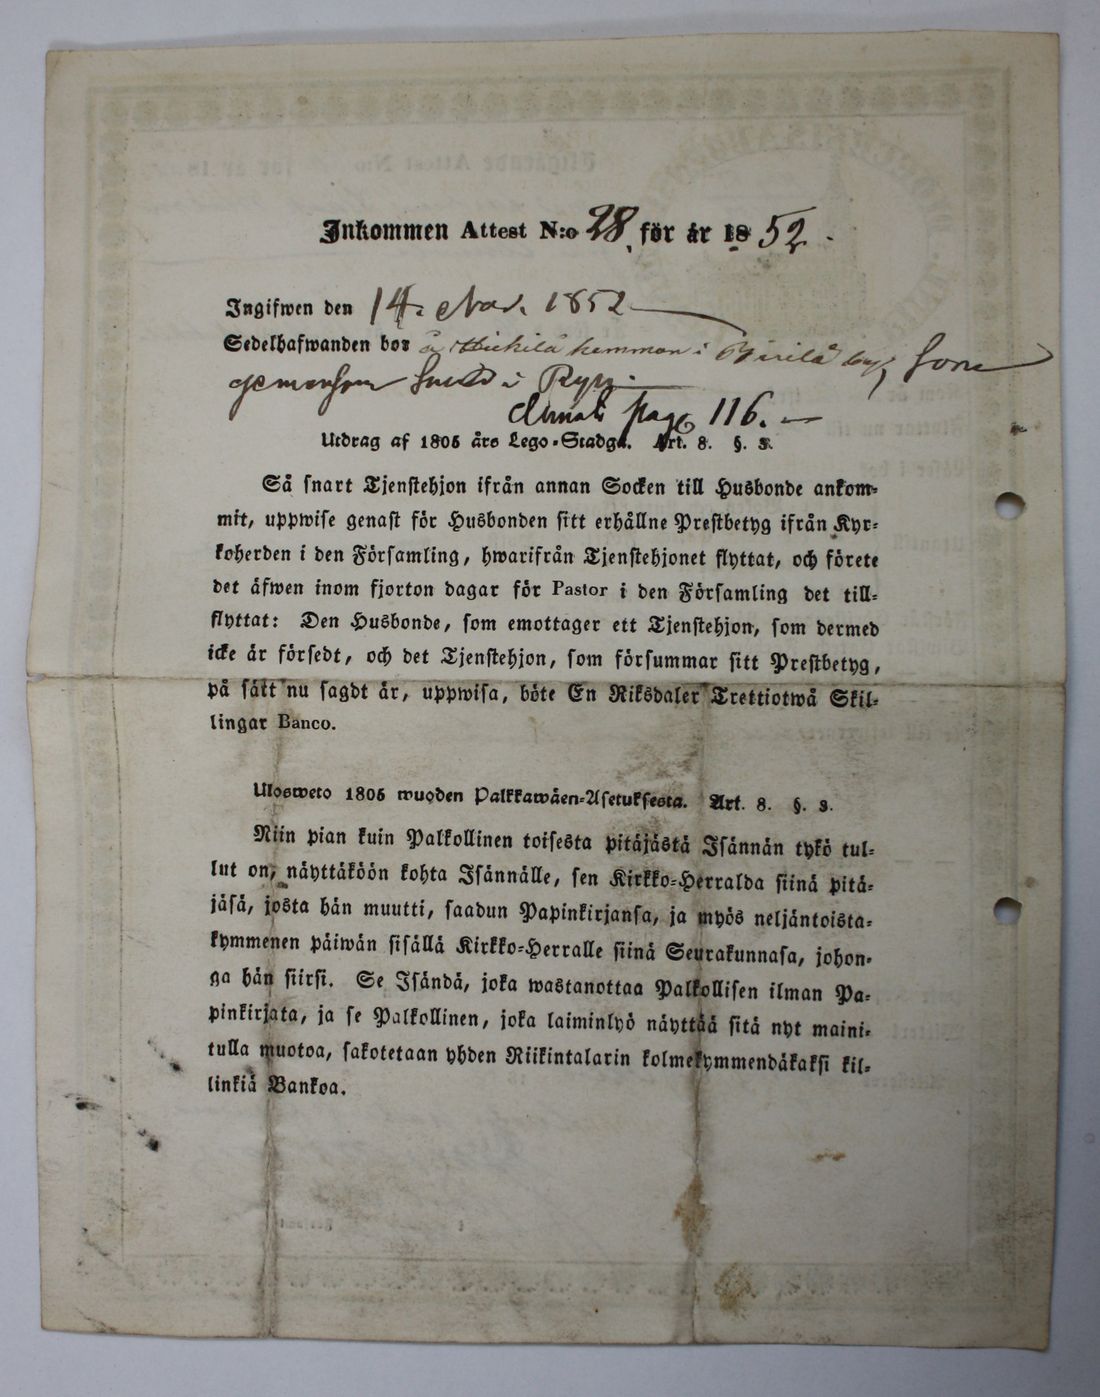 Inkommen Attest N:o 28, för år 1852.
Ingifwen den 14. Nov. 1852
Sedelhafwanden bor å hemman i by, som
i
pag 116.
Utdrag af 1805 års Lego-Stadga. Art. 8. §. 3.
Så snart Tjenstehjon ifrån annan Socken till Husbonde ankom-
mit, uppwise genast för Husbonden sitt erhållne Prestbetyg ifrån Kyr-
koherden i den Församling, hwarifrån Tjenstehjonet flyttat, och förete
det äfwen inom fjorton dagar för Pastor i den Församling det till-
flyttat: Den Husbonde, som emottager ett Tjenstehjon, som dermed
icke är försedt, och det Tjenstehjon, som försummar sitt Prestbetyg,
på sätt nu sagdt är, uppwisa, böte En Riksdaler Trettiotwå Skil-
lingar Banco.
Ulosweto 1805 wuoden Palkkawäen-Asetuksesta. Art. 8. §. 3.
Niin pian kuin Palkollinen toisesta pitäjästä Isännän tykö tul-
lut on, näyttäköön kohta Isännälle, sen Kirkko-Herralda siinä pitä-
jäsä, josta hän muutti, saadun Papinkirjansa, ja myös neljäntoista-
kymmenen päiwän sisällä Kirkko-Herralle siinä Seurakunnasa, johon-
ga hän siirsi. Se Isändä, joka wastanottaa Palkollisen ilman Pa-
pinkirjata, ja se Palkollinen, joka laiminlyö näyttää sitä nyt maini-
tulla muotoa, sakotetaan yhden Riikintalarin kolmekymmendäkaksi kil-
linkiä Bankoa.